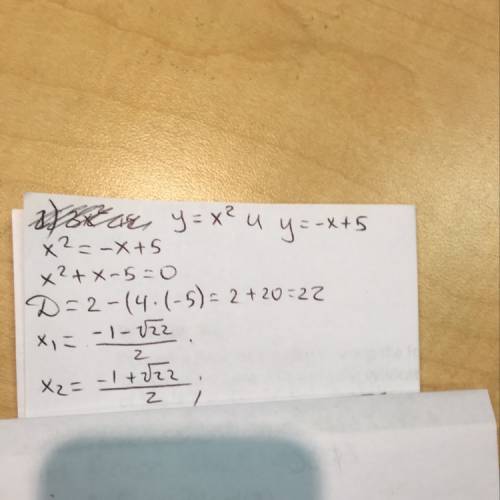 y = x² и y = -x + 5
x² = -x + 5
x² + x - 5 = 0
D = 2 - (4 · (-5) = 2 + 20 = 22
x₁ = (-1 - √22) / 2 .
x₂ = (-1 + √22) / 2 ;